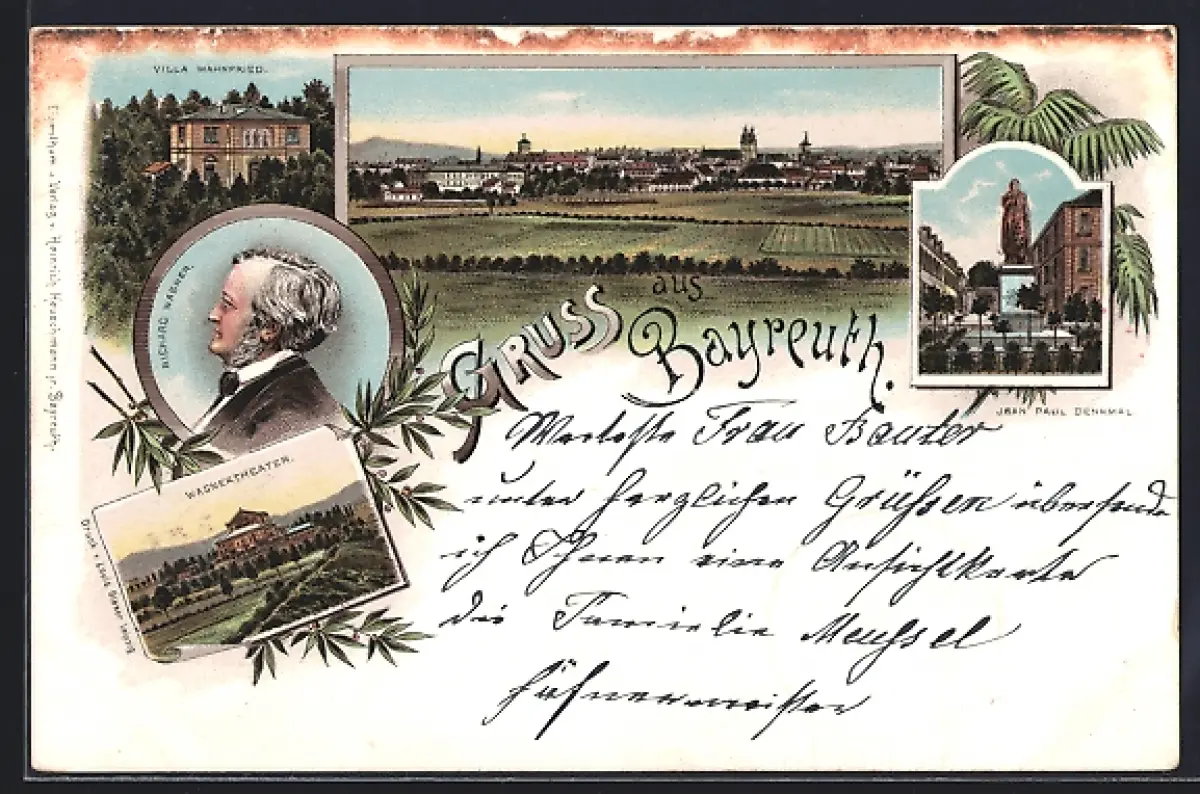 VILLA WAHNFRIED.
RICHARD WAGNER.
WAGNERTHEATER.
GRUSS aus Bayreuth.
JEAN PAUL DENKMAL
Eigenthum u. Verlag v. Heinrich Heuschmann jr. Bayreuth.
Druck v.
Werteste Frau
unter herzlichen Grüßen übersende
ich Ihnen eine Ansichtkarte
die Familie
Häfnermeister